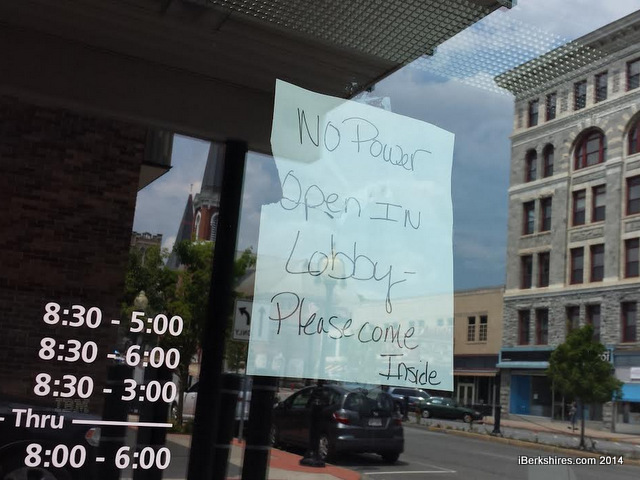 No Power
Open IN
Lobby-
Please come
Inside
8:30 - 5:00
8:30 - 6:00
8:30 - 3:00
- Thru
8:00 - 6:00
iBerkshires.com 2014